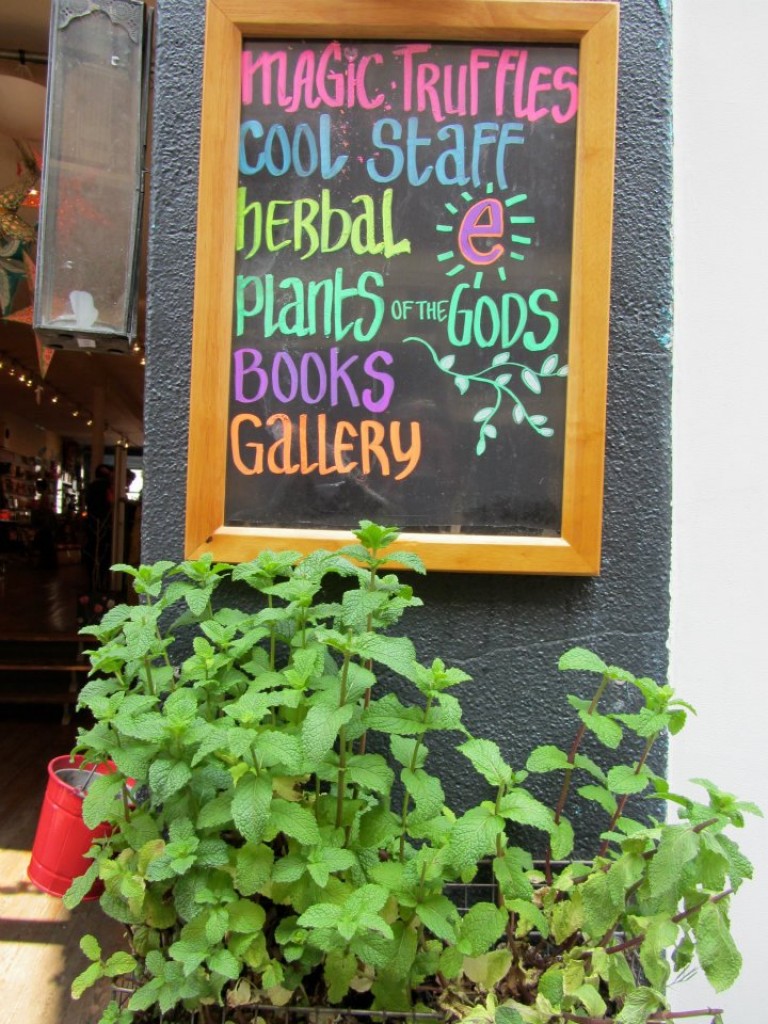 MAGIC TRUFFLES
COOL STAFF
HERBAL e
PLANTS OF THE GODS
BOOKS
GALLERY